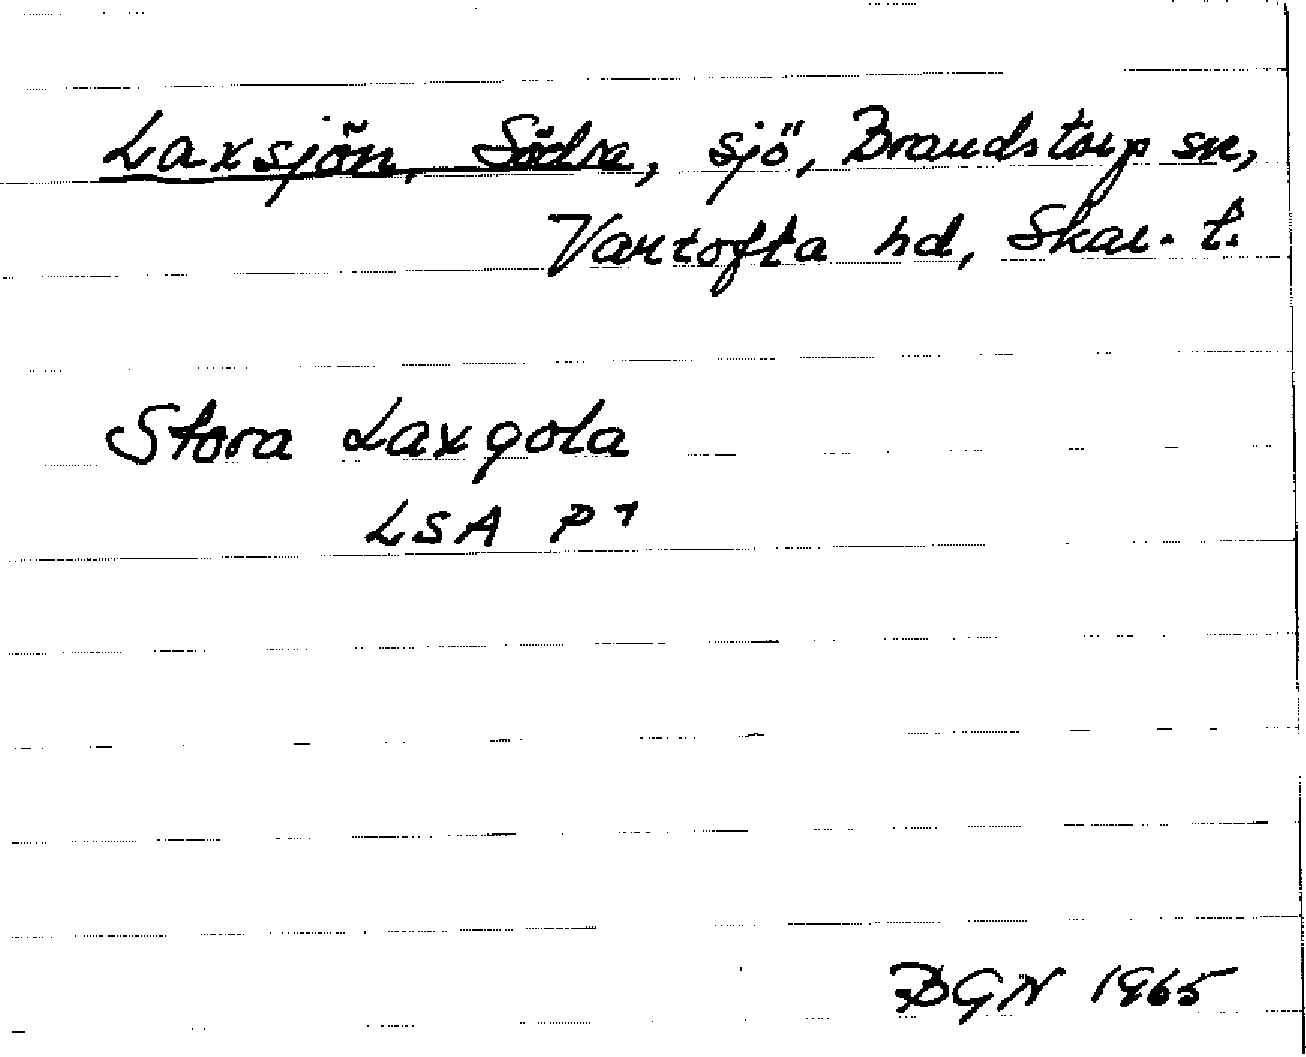 Laxsjön, Södra, sjö, Brandstorp sn,
Vartofta hd, Skar. l.
Stora Laxgola
LSA P 7
BGN 1965